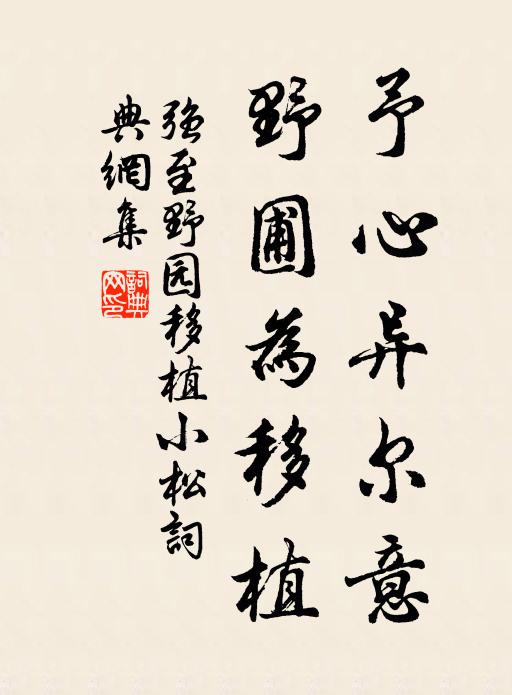 予心异尔意
野圃為移植
强至野园移植小松詞
典網集
詞典
网印